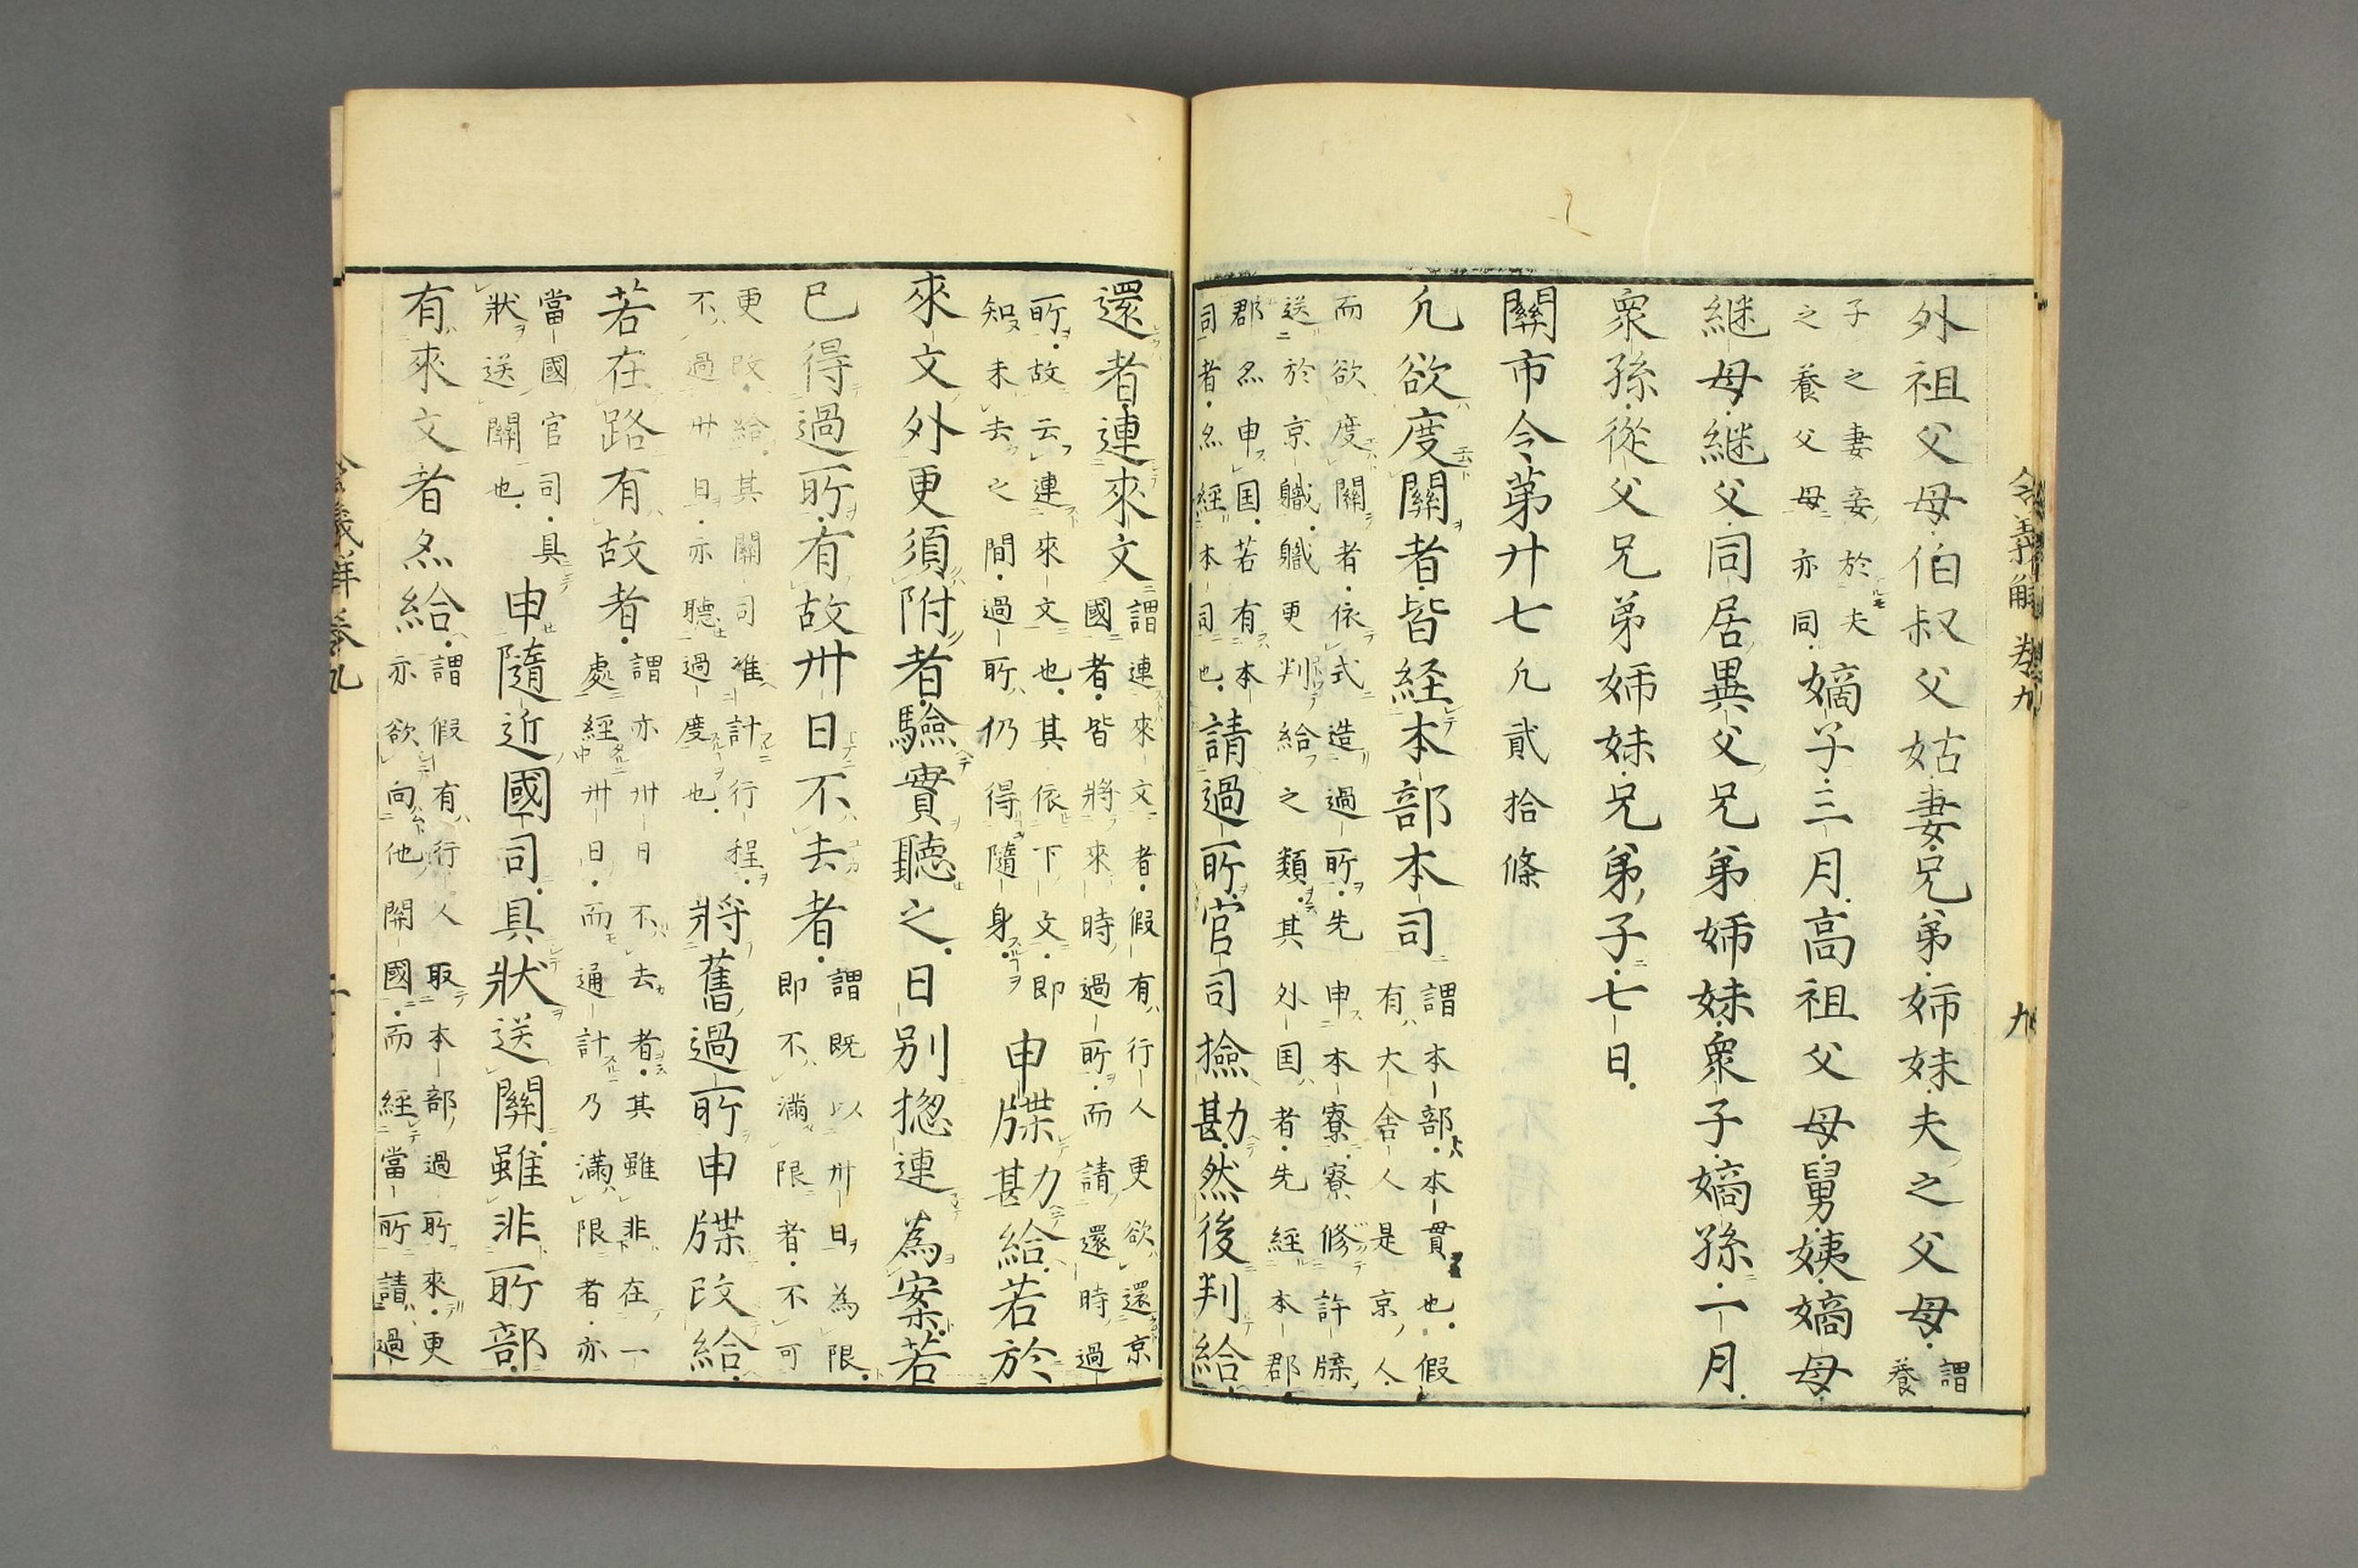 令義解卷九
九
外祖父母伯叔父姑妻兄弟姉妹夫之父母謂養
子之妻妾於夫
之養父母亦同
嫡子三月高祖父母舅姨嫡母
継母継父同居異父兄弟姉妹衆子嫡孫一月
衆孫従父兄弟姉妹兄弟子七日
關市令第廾七凢貳拾條
凢欲度關者皆経本部本司
謂本部本貫也假
有大舍人是京人
而欲度關者依式造過所先申本寮寮修許牒
送於京軄軄更判給之類其外国者先經本郡
郡亦申国若有本
司者亦經本司也
請過所官司撿勘然後判給
還者連來文
謂連來文者假有行人更欲還京
國者皆將來時過所而請還時過
所故云連來文也其依下文即
知未去之間過所仍得隨身
申牒勘給若於
來文外更須附者驗實聽之日別捴連為案若
已得過所有故卅日不去者
謂既以卅日為限
即不滿限者不可
更改給其關司准計行程
不過卅日亦聽過度也
將舊過所申牒改給
若在路有故者
謂亦卅日不去者其雖非在一
處經卅日而通計乃滿限者亦
當國官司具
狀送關也
申隨近國司具狀送關雖非所部
有來文者亦給
謂假有行人取本部過所來更
亦欲向他關國而經當所請過
令義解卷九